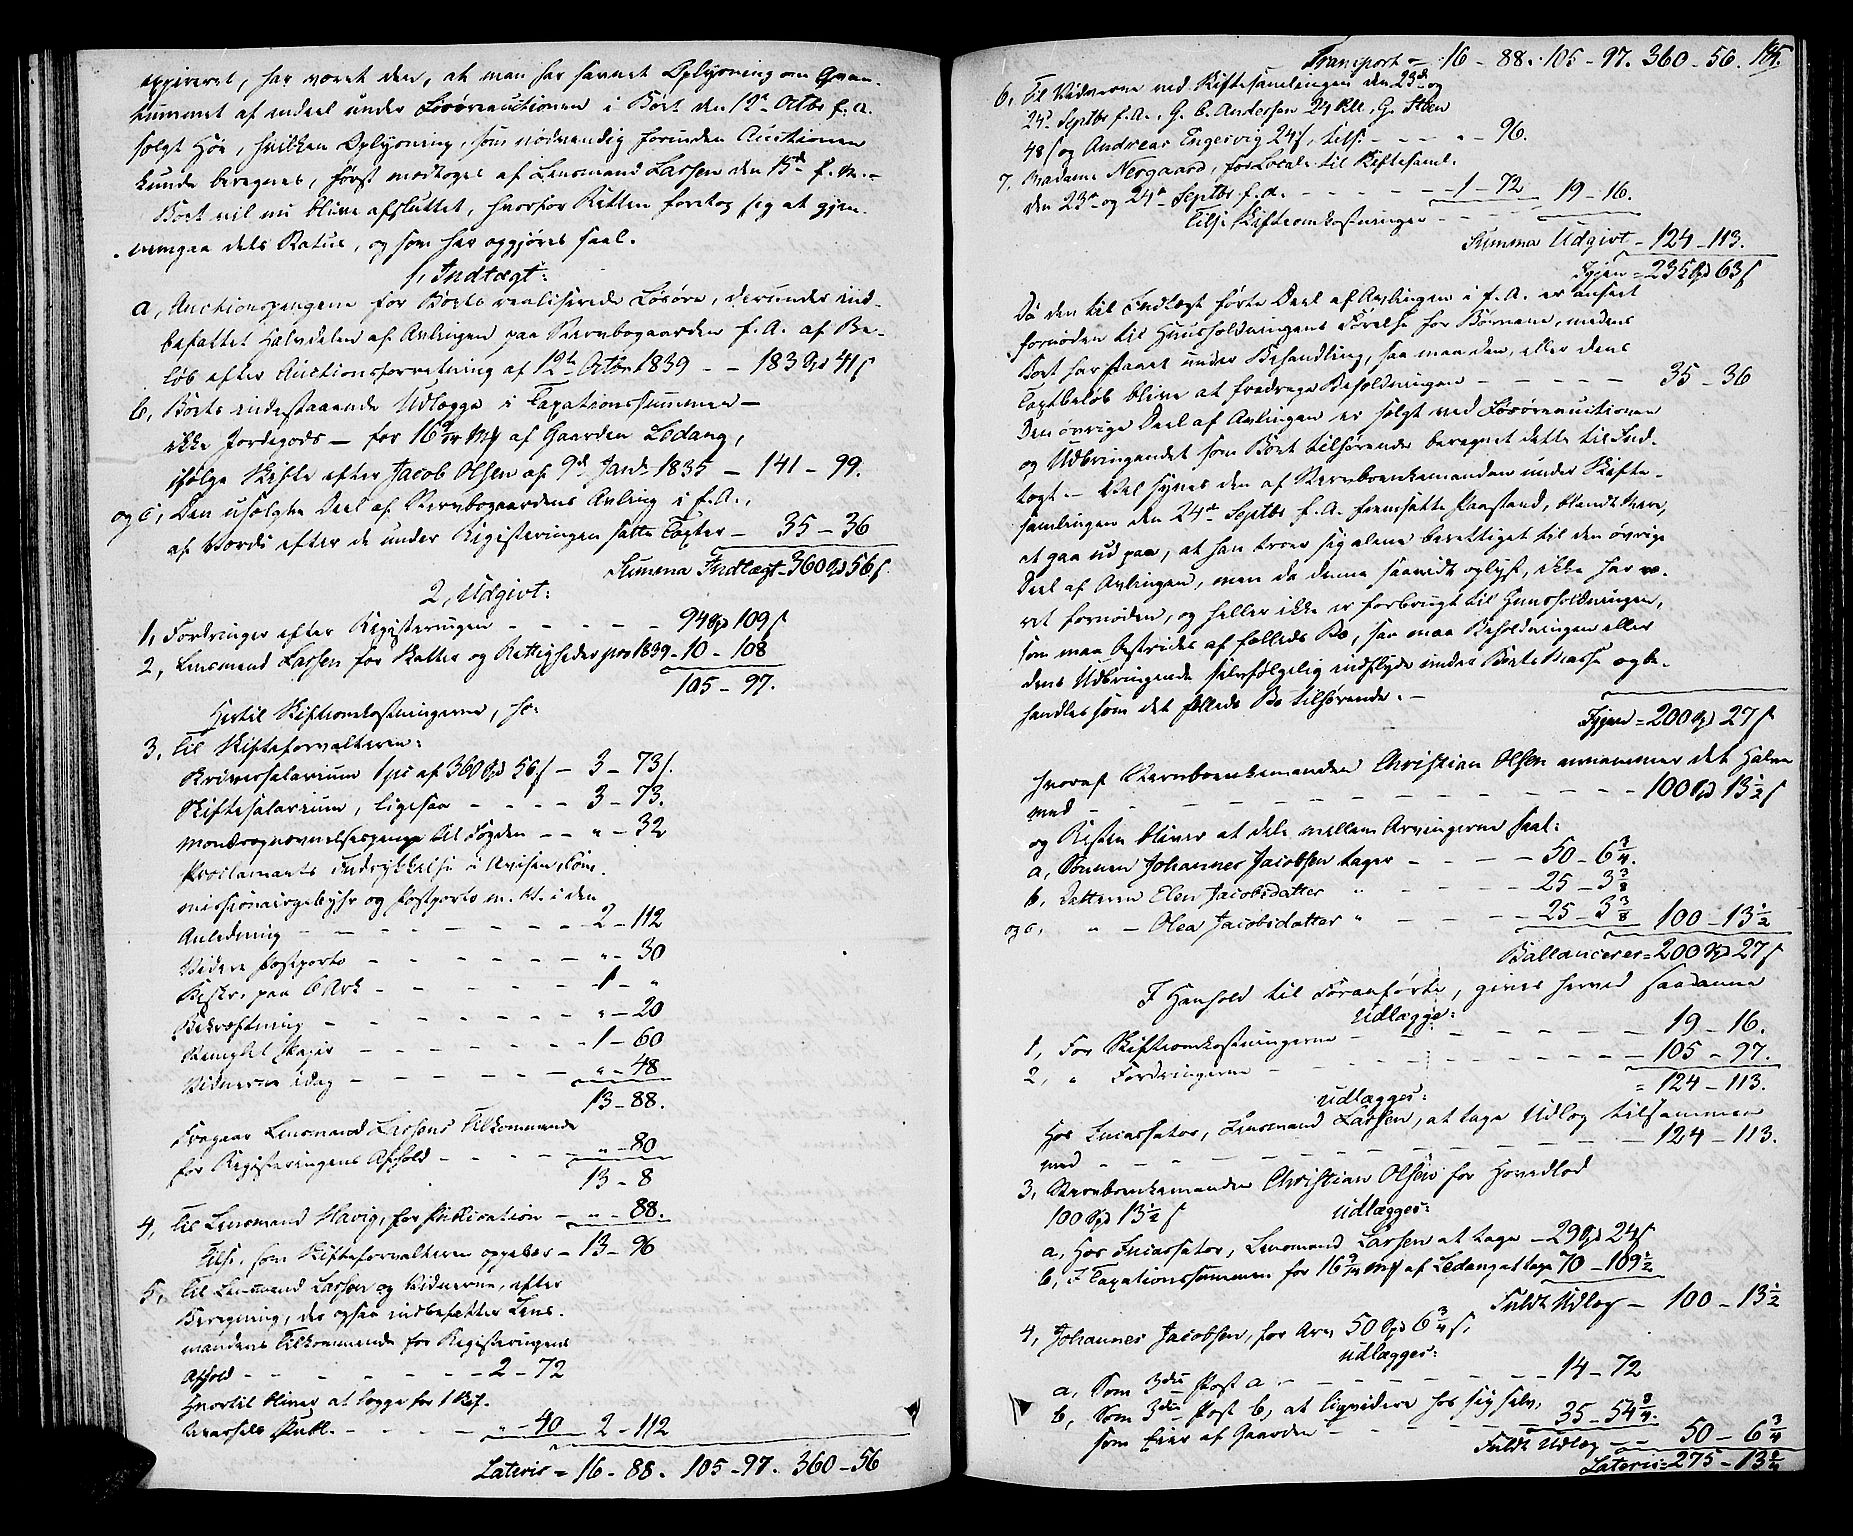 expireret, har været den, at man har savnet Oplysning om Qvan-
tummet af endeel under Løsøreauctionen i Boet den 12te Octbr f. A.
solgt Høe, hvilken Oplysning, som nødvendig forinden Auctionen
kunde beregnes, først modtoges af Lensmand Larsen den 15de f. M. –
Boet vil nu blive afsluttet, hvorfor Retten foretog sig at gjen-
nemgaae dets Status, og som her opgjøres saal.
1, Indtægt:
a, Auctionspengene for Boets realiserede Løsøre, derunder ind-
befattet Halvdelen af Avlingen paa Stervbogaarden f. A. af Be-
løb efter Auctionsforretning af 12te Octbr 1839 – – 183 Spd 41 ß
b, Boets indestaaende Udlægge i Taxationssummen –
ikke Jordegods – for 16 9/14 Mk af Gaarden Ledang,
ifølge Skifte efter Jacob Olsen af 9de Janr 1835 – 141 – 99.
og c, Den usolgte Deel af Stervbogaardens Avling i f. A.,
af Værdi efter de under Registeringen satte Taxter – 35 – 36
Summa Indtægt – 360 Spd 56 ß.
2, Udgivt:
1, Fordringer efter Registeringen – – – – – 94 Spd 109 ß
2, Lensmand Larsen for Skatter og Rettigheder pro 1839 – 10 – 108
105 – 97.
Hertil Skifteomkostningerne, so:
3, Til Skifteforvalteren:
Skriversalarium 1 pC af 360 Spd 56 ß – 3 – 73 ß.
Skiftesalarium, ligesaa – – – – 3 – 73.
til Fogden – – " – 32
Proclamants Indrykkelse i Avisen, Com-
missionairgebyhr og Postporto m. V. i den
Anledning – – – – – – – 2 – 112
Videre Postporto – – – – – – " – 30
Beskr. paa 6 Ark – – – – – – 1 – "
Bekræftning – – – – – – " – 20
Stemplet Papir – – – – – – 1 – 60
Vidnerne idag – – – – – – " – 48
13 – 88.
Fragaar Lensmand Larsens Tilkommende
for Registeringens Afhold – – – – " – 80
13 – 8
4, Til Lensmand Havig, for Publication – " – 88.
Tils. som Skifteforvalteren oppebær – 13 – 96
5, Til Lensmand Larsen og Vidnerne, efter
Beregning, der ogsaa indbefatter Lens-
mandens Tilkommende for Registeringens
Afhold – – – – – – – 2 – 72
Hvortil bliver at lægge for 1
Publ. – – – – " – 40 2 – 112
Lateris = 16 – 88. 105 – 97. 360 – 56
Transport = 16 – 88. 105 – 97. 360 – 56. 185.
6, Til Vidnerne ved Skiftesamlingen den 23de og
24de Septbr f. A., G. C. Andersen 24 Skl., G. Steen
48 ß og Andreas Engesvig 24 ß, tils. – – – " – 96.
7, Madame Neergaard, for Locale til Skiftesaml.
den 23de og 24de Septbr f. A. – – – – – 1 – 72 19 – 16.
Tils. Skifteomkostninger – – –
Summa Udgivt – 124 – 113.
Igjen = 235 Spd 63 ß
Da den til Indtægt førte Deel af Avlingen i f. A. er anseet
fornøden til Huusholdningens Førelse for Børnene, medens
Boet har staaet under Behandling, saa maa den, eller dens
Taxtbeløb blive at fradrage Beholdningen – – – – – 35 – 36
Den øvrige Deel af Avlingen er solgt ved Løsøreauctionen
og Udbringendet som Boet tilhørende beregnet dette til Ind-
tægt. – Vel synes den af Stervboenkemanden under Skifte-
samlingen den 24de Septbr f. A. fremsatte Paastand, blandt Mere,
at gaa ud paa, at han troer sig alene berettiget til den øvrige
Deel af Avlingen, men da denne saavidt oplyst, ikke har væ-
ret fornøden, og heller ikke er forbrugt til Huusholdningen,
som maa bestrides af fælleds Bo, saa maa Beholdningen eller
dens Udbringende selvfølgelig indflyde under Boets Masse og be-
handles som det fælleds Bo tilhørende. –
Igjen = 200 Spd 27 ß
hvoraf Stervboenkemanden Christian Olsen annammer det Halve
med – – – – – – – – – – – 100 Spd 13 1/2 ß
og Resten bliver at dele mellem Arvingerne saal:
a, Sønnen Johannes Jacobsen tager – – – – 50 – 6 3/4.
b, Datteren Elen Jacobsdatter " – – – – 25 – 3 3/8
og c, " – Olea Jacobsdatter " – – – – 25 – 3 3/8 100 – 13 1/2
Ballancerer = 200 Spd 27 ß
I Henhold til Foranførte, gives herved saadanne
Udlægge:
1, For Skifteomkostningerne – – – – – – 19 – 16.
2, " Fordringerne – – – – – – – – 105 – 97.
= 124 – 113.
udlægges:
Hos Incassator, Lensmand Larsen, at tage Udlog tilsammen
med – – – – – – – – – – – 124 – 113.
3, Stervboenkemanden Christian Olsen for Hovedlod
100 Spd 13 1/2 ß
udlægges:
a, Hos Incassator, Lensmand Larsen at tage – 29 Spd 24 ß
b, I Taxationssummen for 16 9/14 Mk af Ledang at tage 70 – 109 1/2
Fuldt Udlæg – 100 – 13 1/2
4, Johannes Jacobsen, for Arv 50 Spd 6 3/4 ß,
udlægges:
a, Som 3die Post a – – – – – – – 14 – 72
b, Som 3die Post b, at liqvidere hos sig selv,
som Eier af Gaarden – – – – – 35 – 54 3/4.
Fuldt Udlæg – – 50 – 6 3/4
Lateris = 275 – 13 1/4